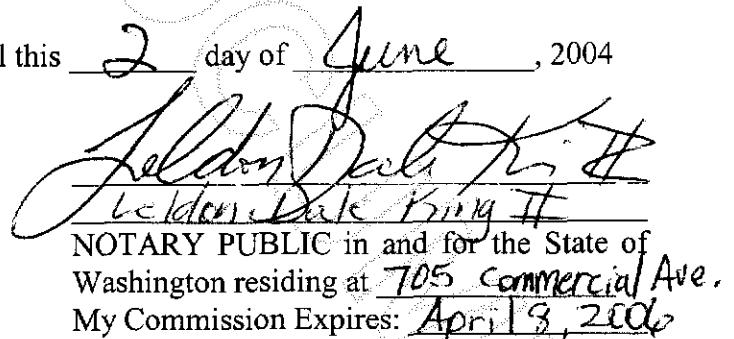 l this 2 day of June, 2004
Leldon Dale King II
Leldon Dale King II
NOTARY PUBLIC in and for the State of
Washington residing at 705 Commercial Ave.
My Commission Expires: April 8, 2006